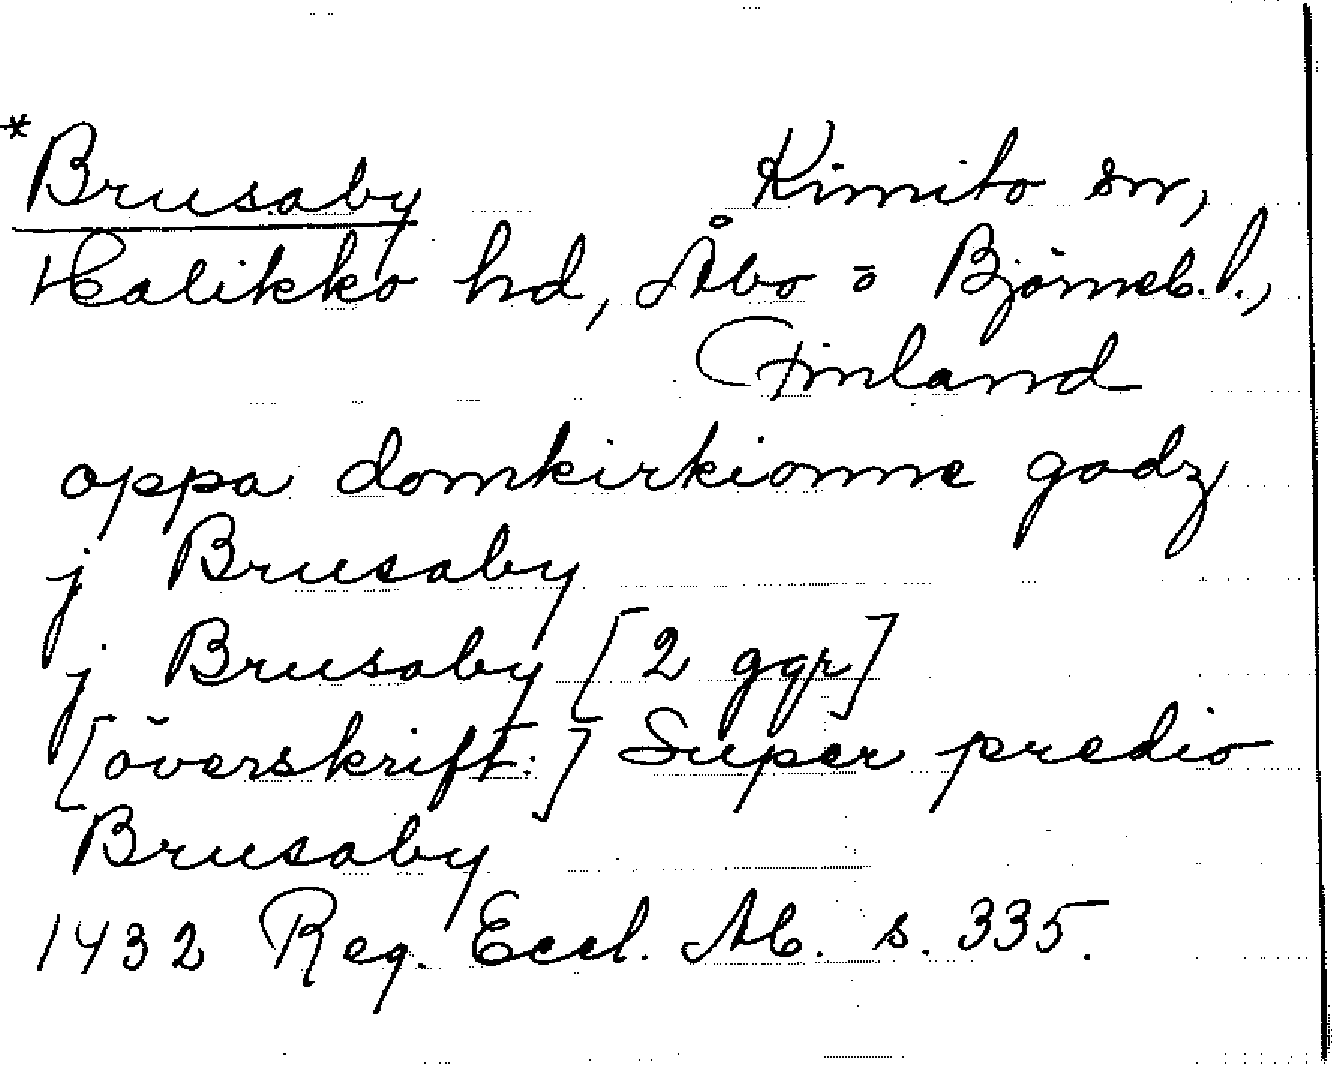 *Brusaby Kimito sn,
Halikko hd, Åbo o Björneb. l.,
Finland
oppa domkirkionne godz
j Brusaby
j Brusaby [2 ggr]
[överskrift:] Super predio
Brusaby
1432 Reg. Eccl. Ab. s. 335.